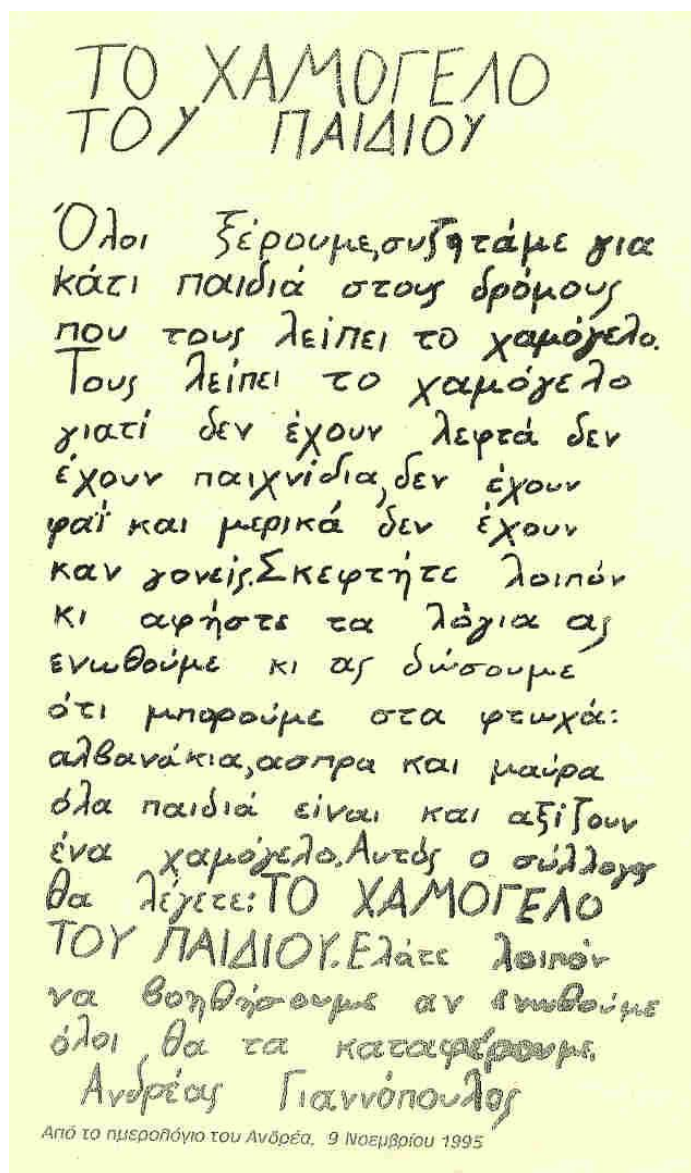 ΤΟ ΧΑΜΟΓΕΛΟ
ΤΟΥ ΠΑΙΔΙΟΥ
Όλοι ξέρουμε,συζητάμε για
κάτι παιδιά στους δρόμους
που τους λείπει το χαμόγελο.
Τους λείπει το χαμόγελο
γιατί δεν έχουν λεφτά δεν
έχουν παιχνίδια,δεν έχουν
φαΐ και μερικά δεν έχουν
καν γονείς.Σκεφτήτε λοιπόν
κι αφήστε τα λόγια ας
ενωθούμε κι ας δώσουμε
ότι μπορούμε στα φτωχά:
αλβανάκια,ασπρα και μαύρα
όλα παιδιά είναι και αξίζουν
ένα χαμόγελο.Αυτός ο σύλλογος
θα λέγετε:ΤΟ ΧΑΜΟΓΕΛΟ
ΤΟΥ ΠΑΙΔΙΟΥ.Ελάτε λοιπόν
να βοηθήσουμε αν ενωθούμε
όλοι θα τα καταφέρουμε.
Ανδρέας Γιαννόπουλος
Από το ημερολόγιο του Ανδρέα, 9 Νοεμβρίου 1995